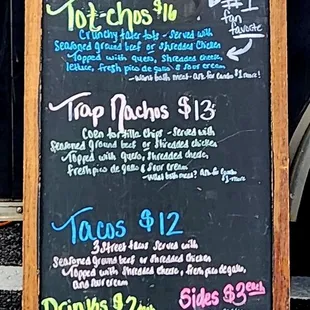 Tot-chos $16
#1
fan
favorite
Crunchy tater tots - Served with
Seasoned ground beef or Shredded Chicken
Topped with queso, Shredded cheese,
lettuce, fresh pico de gallo & sour cream
- want both meat - ask for combo $1 more!
Trap Nachos $13
Corn tortilla chips - Served with
Seasoned Ground beef or Shredded chicken
Topped with queso, Shredded cheese,
Fresh pico de gallo & Sour cream
- want both meat? - ask for combo
$1 more
Tacos $12
3 Street tacos served with
Seasoned Ground beef or Shredded chicken
Topped with Shredded cheese, fresh pico de gallo,
and sour cream
Drinks $2 each
Sides $3 each